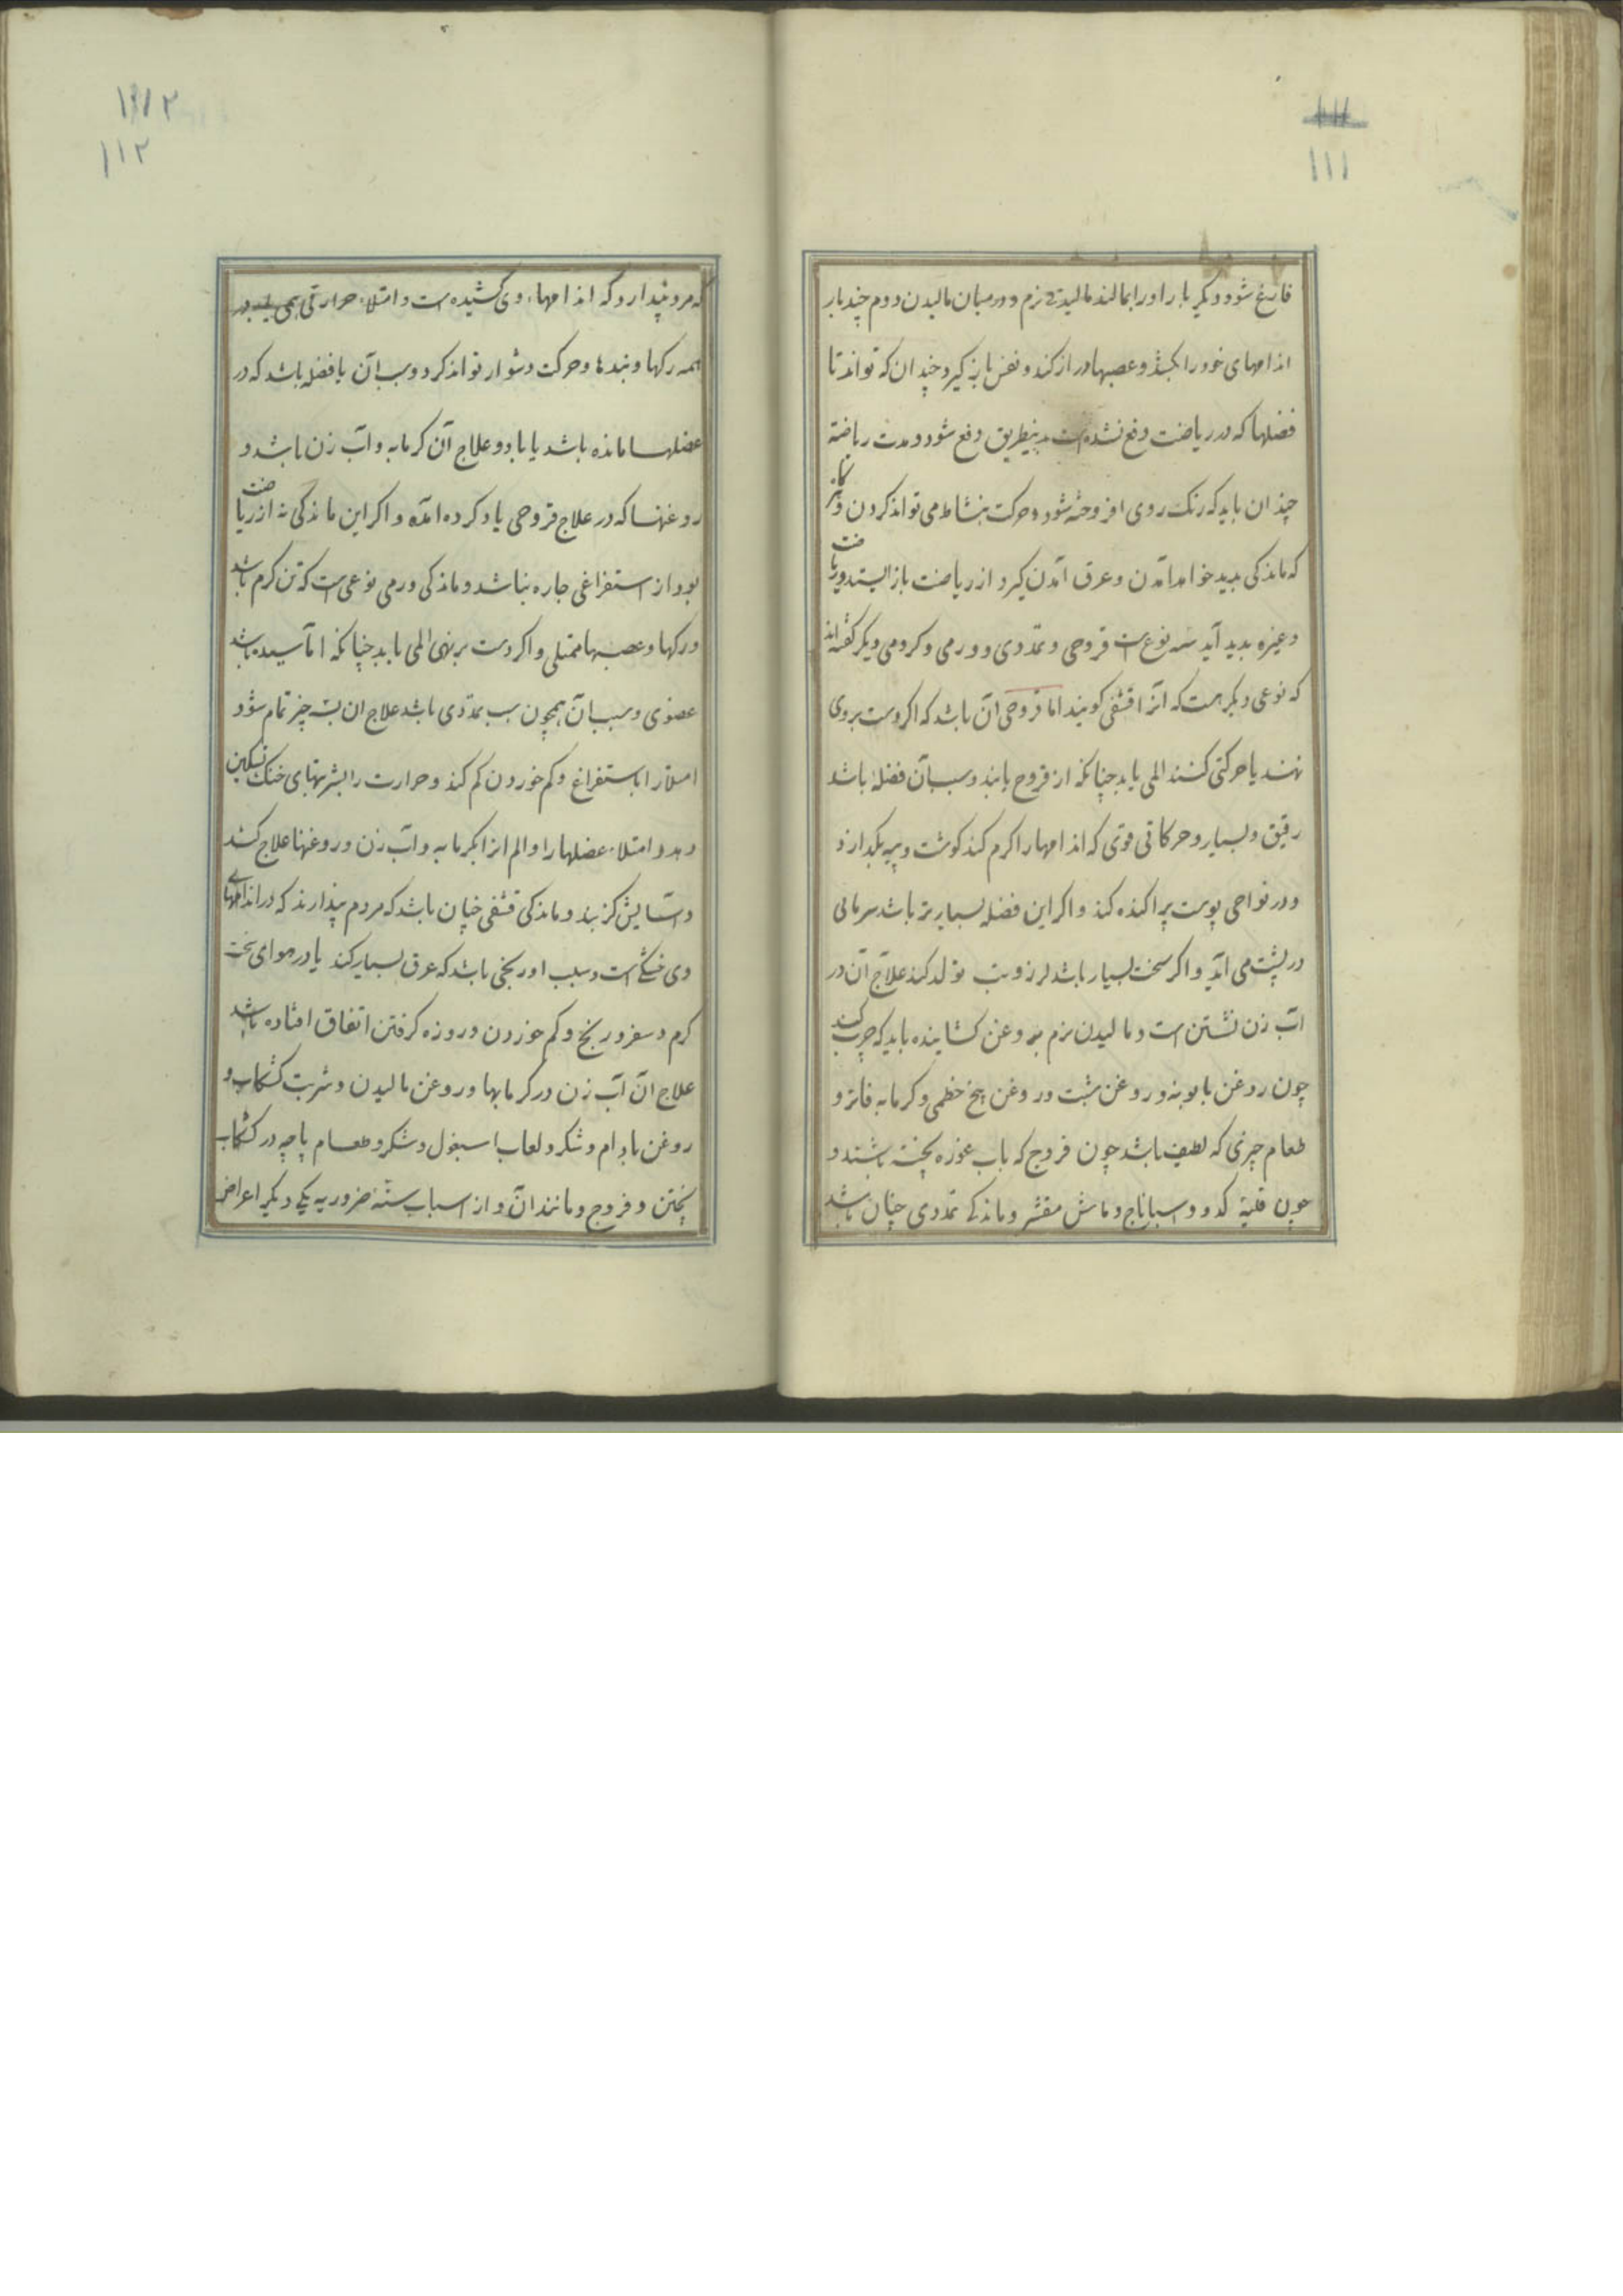 ١١١
فارغ شود دیگر بار او را بمالند مالیدنی نرم و در میان مالیدن دوم چند بار
اندامهای خود را بکشد و عصبها دراز کند و نفس باز گیرد چندان که تواند تا
فضلها که در ریاضت دفع نشده است بدینطریق دفع شود و مدت ریاضة
چندان باید که رنک روی افروخته شود و حرکت بنشاط می تواند کردن و
که ماندکی بدید خواهد آمدن و عرق آمدن کیرد از ریاضت باز ایستد و ریاضت
و غیره بدید آید سه نوع است قروحی و تمددی و ورمی و کروهی دیکر گفته اند
که نوعی دیکر هست که آنرا قشفی کویند اما قروحی آن باشد که اکر دست بروی
نهند یا حرکتی کنند المی یابد چنانکه از قروح یابند و سبب آن فضلهٔ باشد
رقیق و بسیار و حرکاتی قوی که اندامها را کرم کند کوشت و پیه بکدازد
و در نواحی پوست پراکنده کند و اکر این فضله بسیارتر باشد سرمائی
در پشت می آید و اکر سخت بسیار باشد لرز و تب تولد کند علاج آن در
آب زن نشستن است و مالیدن نرم به روغن کشاینده باید که چرب کنند
چون روغن بابونه و روغن شبت و روغن بیخ خطمی و کرمابه فاتر و
طعام چیزی که لطیف باشد چون فروج که باب غوره پخته باشند و
چون قلیهٔ کدو و اسباناج و ماش مقشر و ماندکی تمددی چنان باشد
١١٢
١١٢
که مرد پندارد که اندامهاء وی کشیده است و امتلاء حرارتی همی یابد در
همه رکها و بندها و حرکت دشوار تواند کرد و سبب آن یا فضله باشد که در
عضلها مانده باشد یا بادو علاج آن کرمابه و آب زن باشد و
روغنها که در علاج قروحی یاد کرده آمده و اکر این ماندکی نه از ریاضت
بود از استفراغی چاره نباشد و ماندکی ورمی نوعی است که تن کرم باشد
و رکها و عصبها ممتلی و اکر دست بر نهی المی یابد چنانکه اماسیده باشد
عضوی و سبب آن همچون سبب تمددی باشد علاج ان بسه چیز تمام شود
امتلا را باستفراغ و کم خوردن کم کند و حرارت را بشربتهای خنک تسکین
دهد و امتلاء عضلها را و الم آنرا بکرمابه و آب زن و روغنها علاج کند
و آسایش کزیند و ماندکی قشفی چنان باشد که مردم پندارند که در اندامهای
وی خشکی است و سبب او رنجی باشد که عرق بسیار کند یا در هوای سخت
کرم و سفر و رنج و کم خوردن و روزه کرفتن اتفاق افتاده باشد
علاج آن آب زن در کرمابها و روغن مالیدن و شربت کشکاب و
روغن بادام و شکر و لعاب اسبغول و شکر و طعام پاچه در کشکاب
پختن و فروج و مانند آن و از اسباب ستّه ضروریه یکی دیگر اعراض